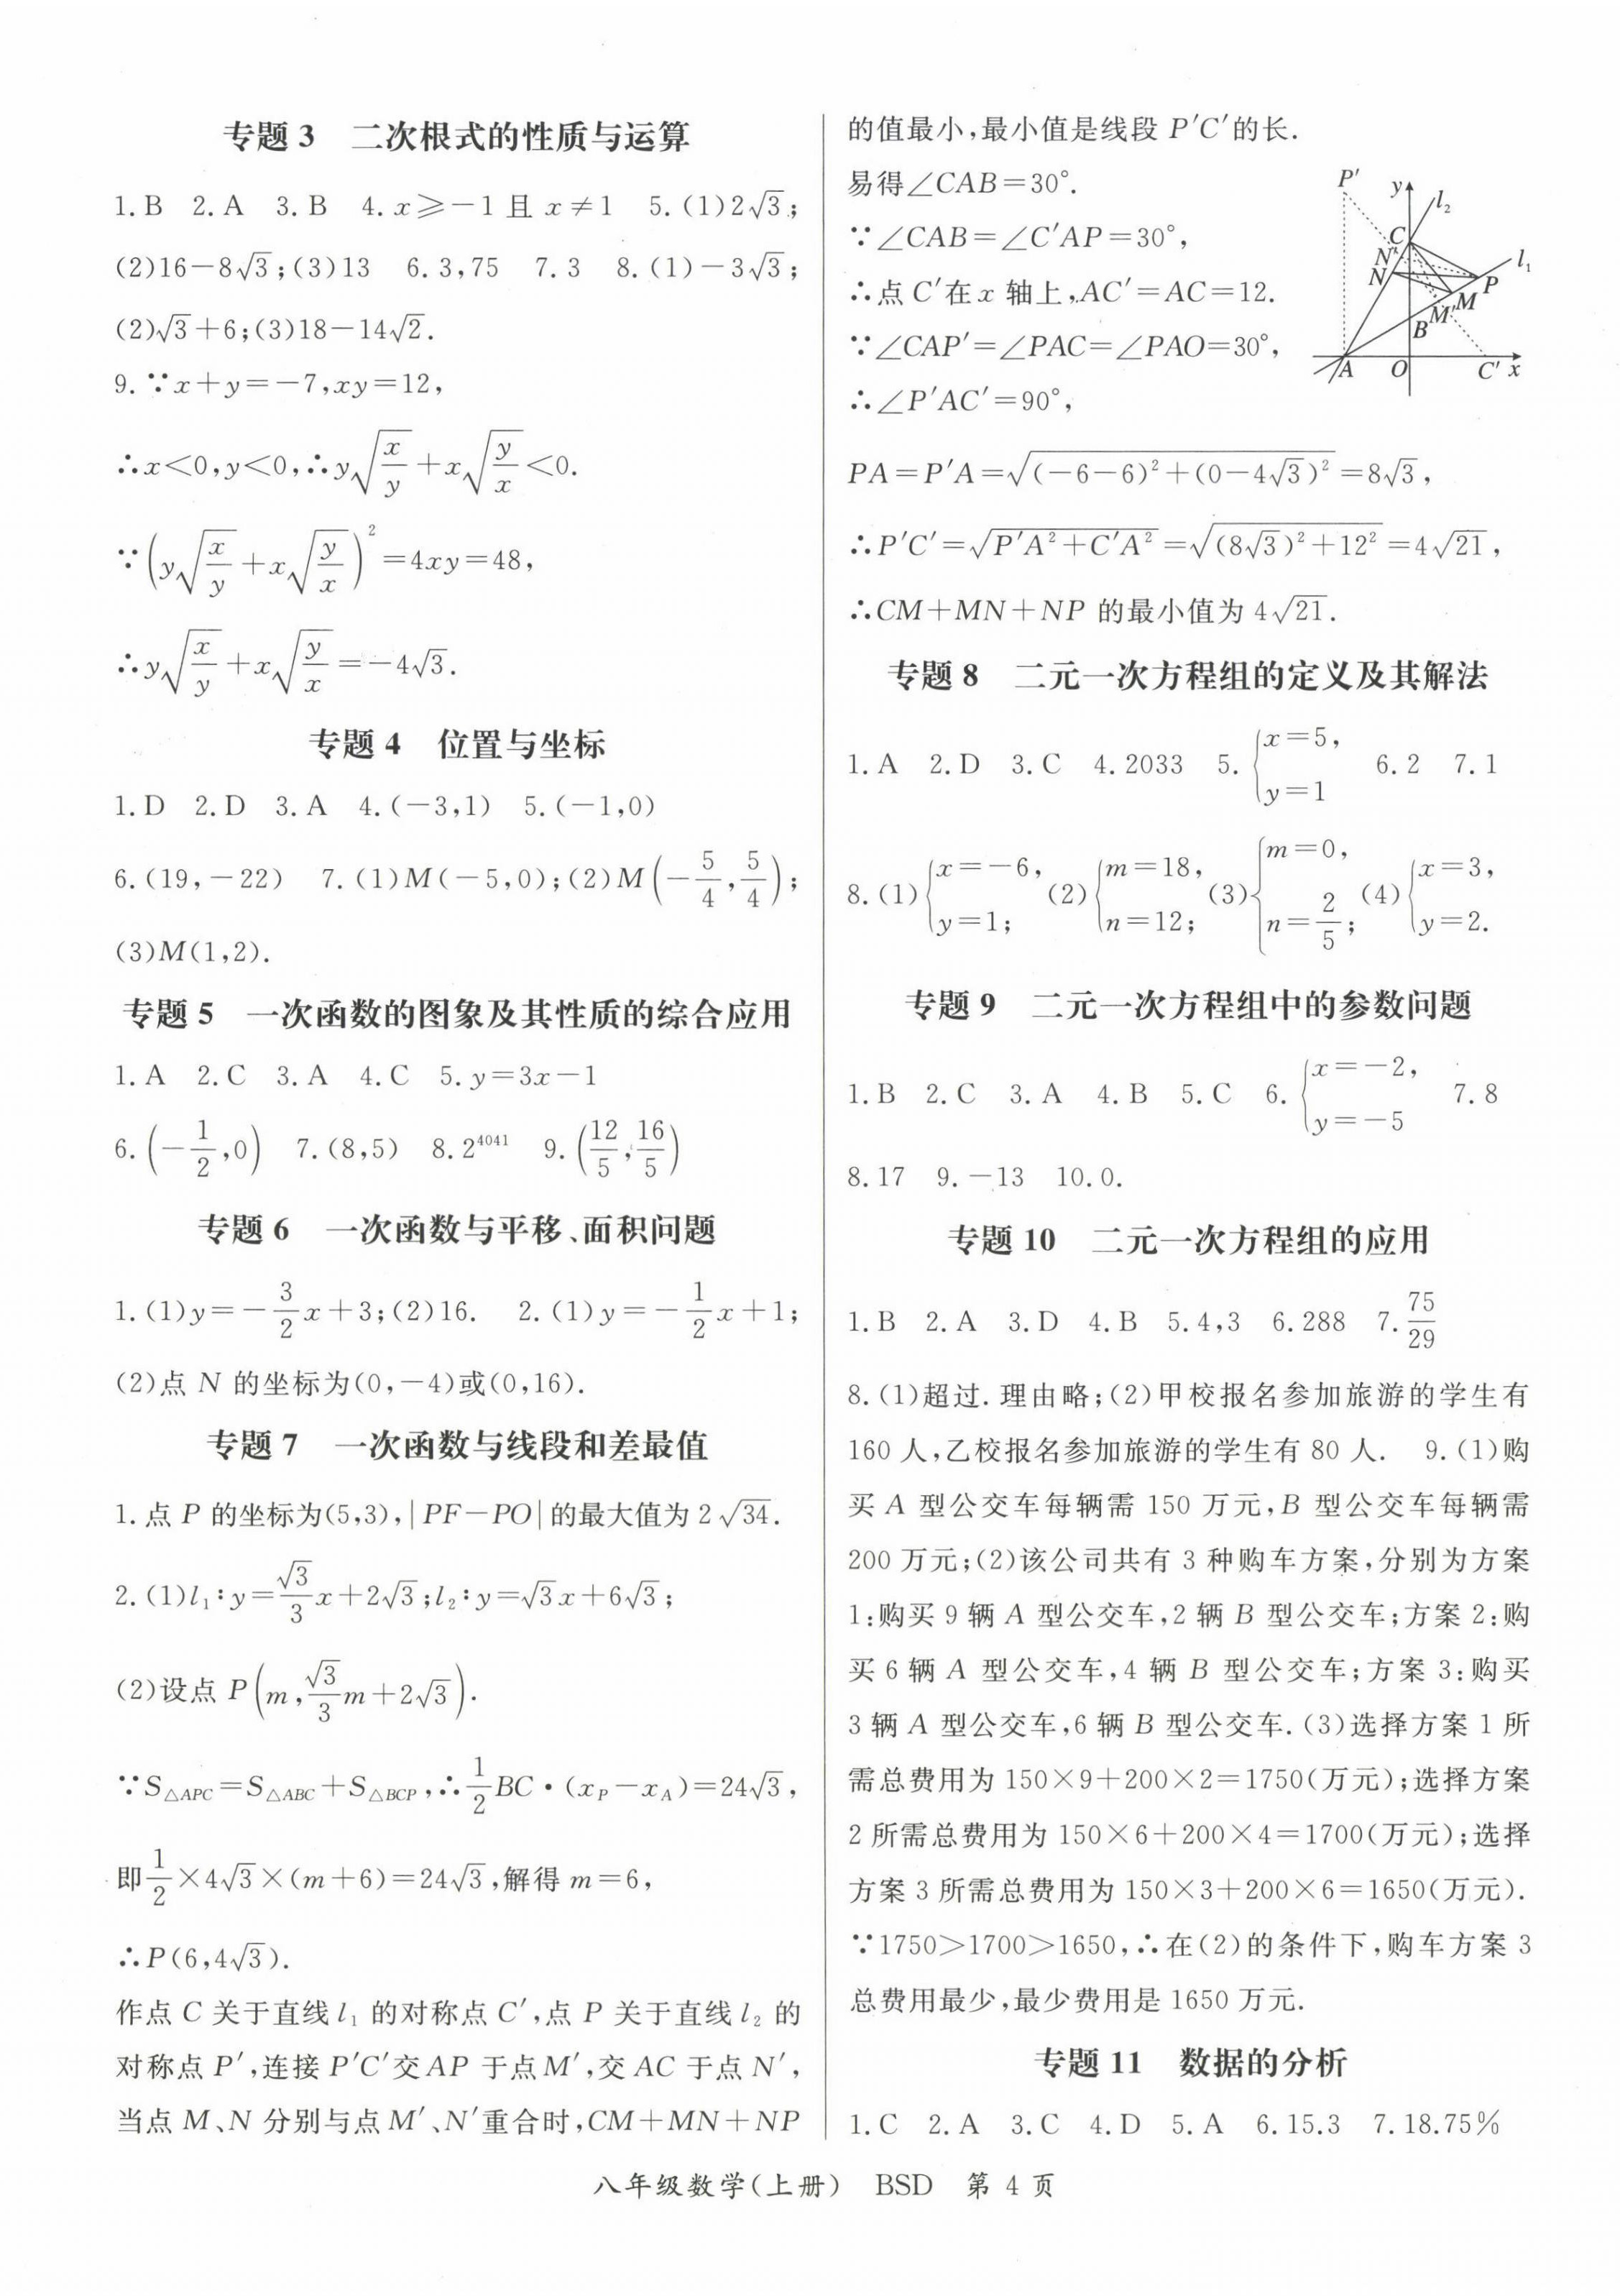 专题 3 二次根式的性质与运算
1.B 2.A 3.B 4.x⩾-1 且 x≠1 5.(1)2√3;
(2)16-8√3;(3)13 6.3,75 7.3 8.(1)-3√3;
(2)√3+6;(3)18-14√2.
9.∵x+y=-7,xy=12,
∴x<0,y<0,∴y√(x/y)+x√(y/x)<0.
∵(y√(x/y)+x√(y/x))²=4xy=48,
∴y√(x/y)+x√(y/x)=-4√3.
专题 4 位置与坐标
1.D 2.D 3.A 4.(-3,1) 5.(-1,0)
6.(19,-22) 7.(1)M(-5,0);(2)M(-5/4,5/4);
(3)M(1,2).
专题 5 一次函数的图象及其性质的综合应用
1.A 2.C 3.A 4.C 5.y=3x-1
6.(-1/2,0) 7.(8,5) 8.2⁴⁰⁴¹ 9.(12/5,16/5)
专题 6 一次函数与平移、面积问题
1.(1)y=-3/2x+3;(2)16. 2.(1)y=-1/2x+1;
(2)点 N 的坐标为(0,-4)或(0,16).
专题 7 一次函数与线段和差最值
1.点 P 的坐标为(5,3),|PF-PO|的最大值为 2√34.
2.(1)l₁:y=√3/3x+2√3;l₂:y=√3x+6√3;
(2)设点 P(m,√3/3m+2√3).
∵S△APC=S△ABC+S△BCP,∴1/2BC·(xP-xA)=24√3,
即1/2×4√3×(m+6)=24√3,解得 m=6,
∴P(6,4√3).
作点 C 关于直线 l₁ 的对称点 C′,点 P 关于直线 l₂ 的
对称点 P′,连接 P′C′交 AP 于点 M′,交 AC 于点 N′,
当点 M、N 分别与点 M′、N′重合时,CM+MN+NP
的值最小,最小值是线段 P′C′的长.
易得∠CAB=30°.
∵∠CAB=∠C′AP=30°,
∴点 C′在 x 轴上,AC′=AC=12.
∵∠CAP′=∠PAC=∠PAO=30°,
∴∠P′AC′=90°,
P′ y l₂ C N′ N l₁ P M M′ B A O C′ x
PA=P′A=√((-6-6)²+(0-4√3)²)=8√3,
∴P′C′=√(P′A²+C′A²)=√((8√3)²+12²)=4√21,
∴CM+MN+NP 的最小值为 4√21.
专题 8 二元一次方程组的定义及其解法
1.A 2.D 3.C 4.2033 5.{x=5, y=1 6.2 7.1
8.(1){x=-6, y=1; (2){m=18, n=12; (3){m=0, n=2/5; (4){x=3, y=2.
专题 9 二元一次方程组中的参数问题
1.B 2.C 3.A 4.B 5.C 6.{x=-2, y=-5 7.8
8.17 9.-13 10.0.
专题 10 二元一次方程组的应用
1.B 2.A 3.D 4.B 5.4,3 6.288 7.75/29
8.(1)超过.理由略;(2)甲校报名参加旅游的学生有
160 人,乙校报名参加旅游的学生有 80 人. 9.(1)购
买 A 型公交车每辆需 150 万元,B 型公交车每辆需
200 万元;(2)该公司共有 3 种购车方案,分别为方案
1:购买 9 辆 A 型公交车,2 辆 B 型公交车;方案 2:购
买 6 辆 A 型公交车,4 辆 B 型公交车;方案 3:购买
3 辆 A 型公交车,6 辆 B 型公交车.(3)选择方案 1 所
需总费用为 150×9+200×2=1750(万元);选择方案
2 所需总费用为 150×6+200×4=1700(万元);选择
方案 3 所需总费用为 150×3+200×6=1650(万元).
∵1750>1700>1650,∴在(2)的条件下,购车方案 3
总费用最少,最少费用是 1650 万元.
专题 11 数据的分析
1.C 2.A 3.C 4.D 5.A 6.15.3 7.18.75%
八年级数学(上册) BSD 第 4 页